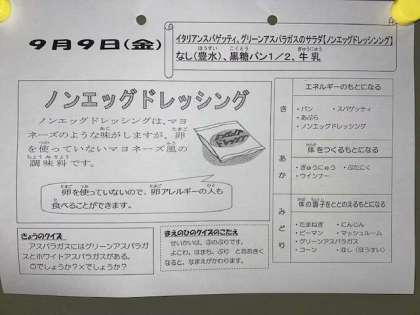 9月9日(金)
イタリアンスパゲッティ、グリーンアスパラガスのサラダ【ノンエッグドレッシング】
なし(豊水)、黒糖パン1/2、牛乳
ほうすい こくとう ぎゅうにゅう
ノンエッグドレッシング
ノンエッグドレッシングは、マヨ
ネーズのような味がしますが、卵
を使っていないマヨネーズ風の
調味料です。
卵を使っていないので、卵アレルギーの人も
食べることができます。
きょうのクイズ
アスパラガスにはグリーンアスパラガ
スとホワイトアスパラガスがある。
○でしょうか?×でしょうか?
まえのひのクイズのこたえ
せいかいは、③のぶりです。
よこわ、はまち、ぶり と おおきく
なると、なまえがかわります。
き
エネルギーのもとになる
・パン ・スパゲティ
・あぶら
・ノンエッグドレッシング
あか
体をつくるもとになる
・ぎゅうにゅう ・ぶたにく
・ウインナー
みどり
体の調子をととのえるもとになる
・たまねぎ ・にんじん
・ピーマン ・マッシュルーム
・グリーンアスパラガス
・コーン ・なし(ほうすい)